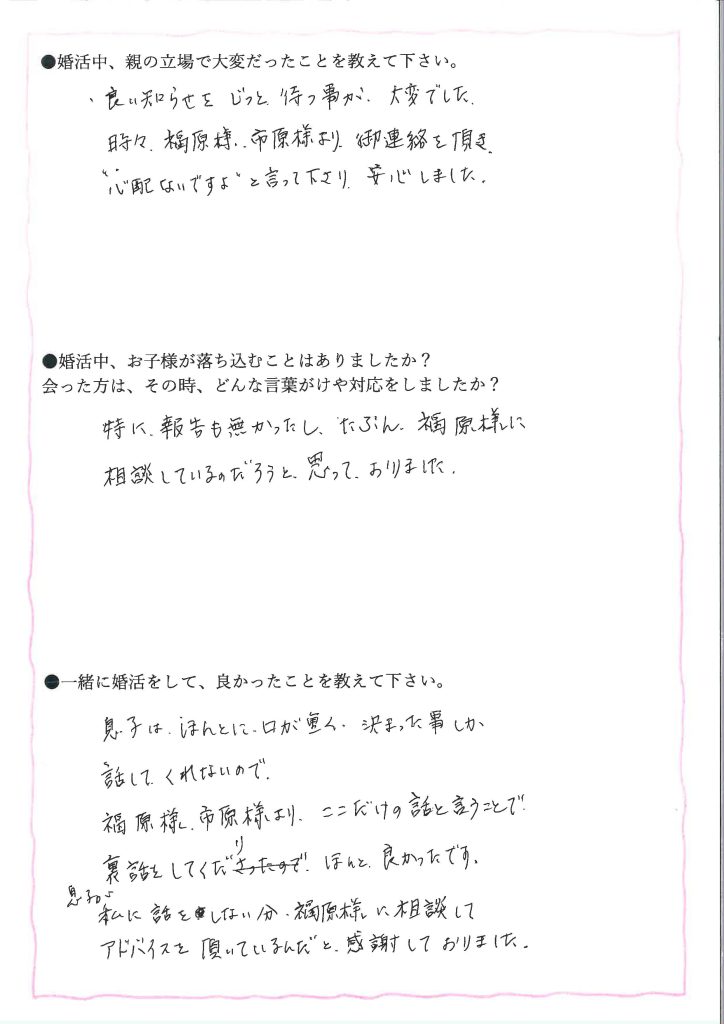 ●婚活中、親の立場で大変だったことを教えて下さい。
・良い知らせを じっと 待つ事が、大変でした。
時々、福原様、市原様より、御連絡を頂き、
“心配ないですよ”と言って下さり、安心しました。
●婚活中、お子様が落ち込むことはありましたか？
会った方は、その時、どんな言葉がけや対応をしましたか？
特に、報告も無かったし、たぶん、福原様に
相談しているのだろうと、思って、おりました。
●一緒に婚活をして、良かったことを教えて下さい。
息子は、ほんとに、口が重く、決まった事しか
話して、くれないので、
福原様、市原様より、ここだけの話と言うことで
裏話をしてくださり、ほんと、良かったです。
息子が
私に話をしない分、福原様に相談して
アドバイスを頂いているんだと、感謝しておりました。